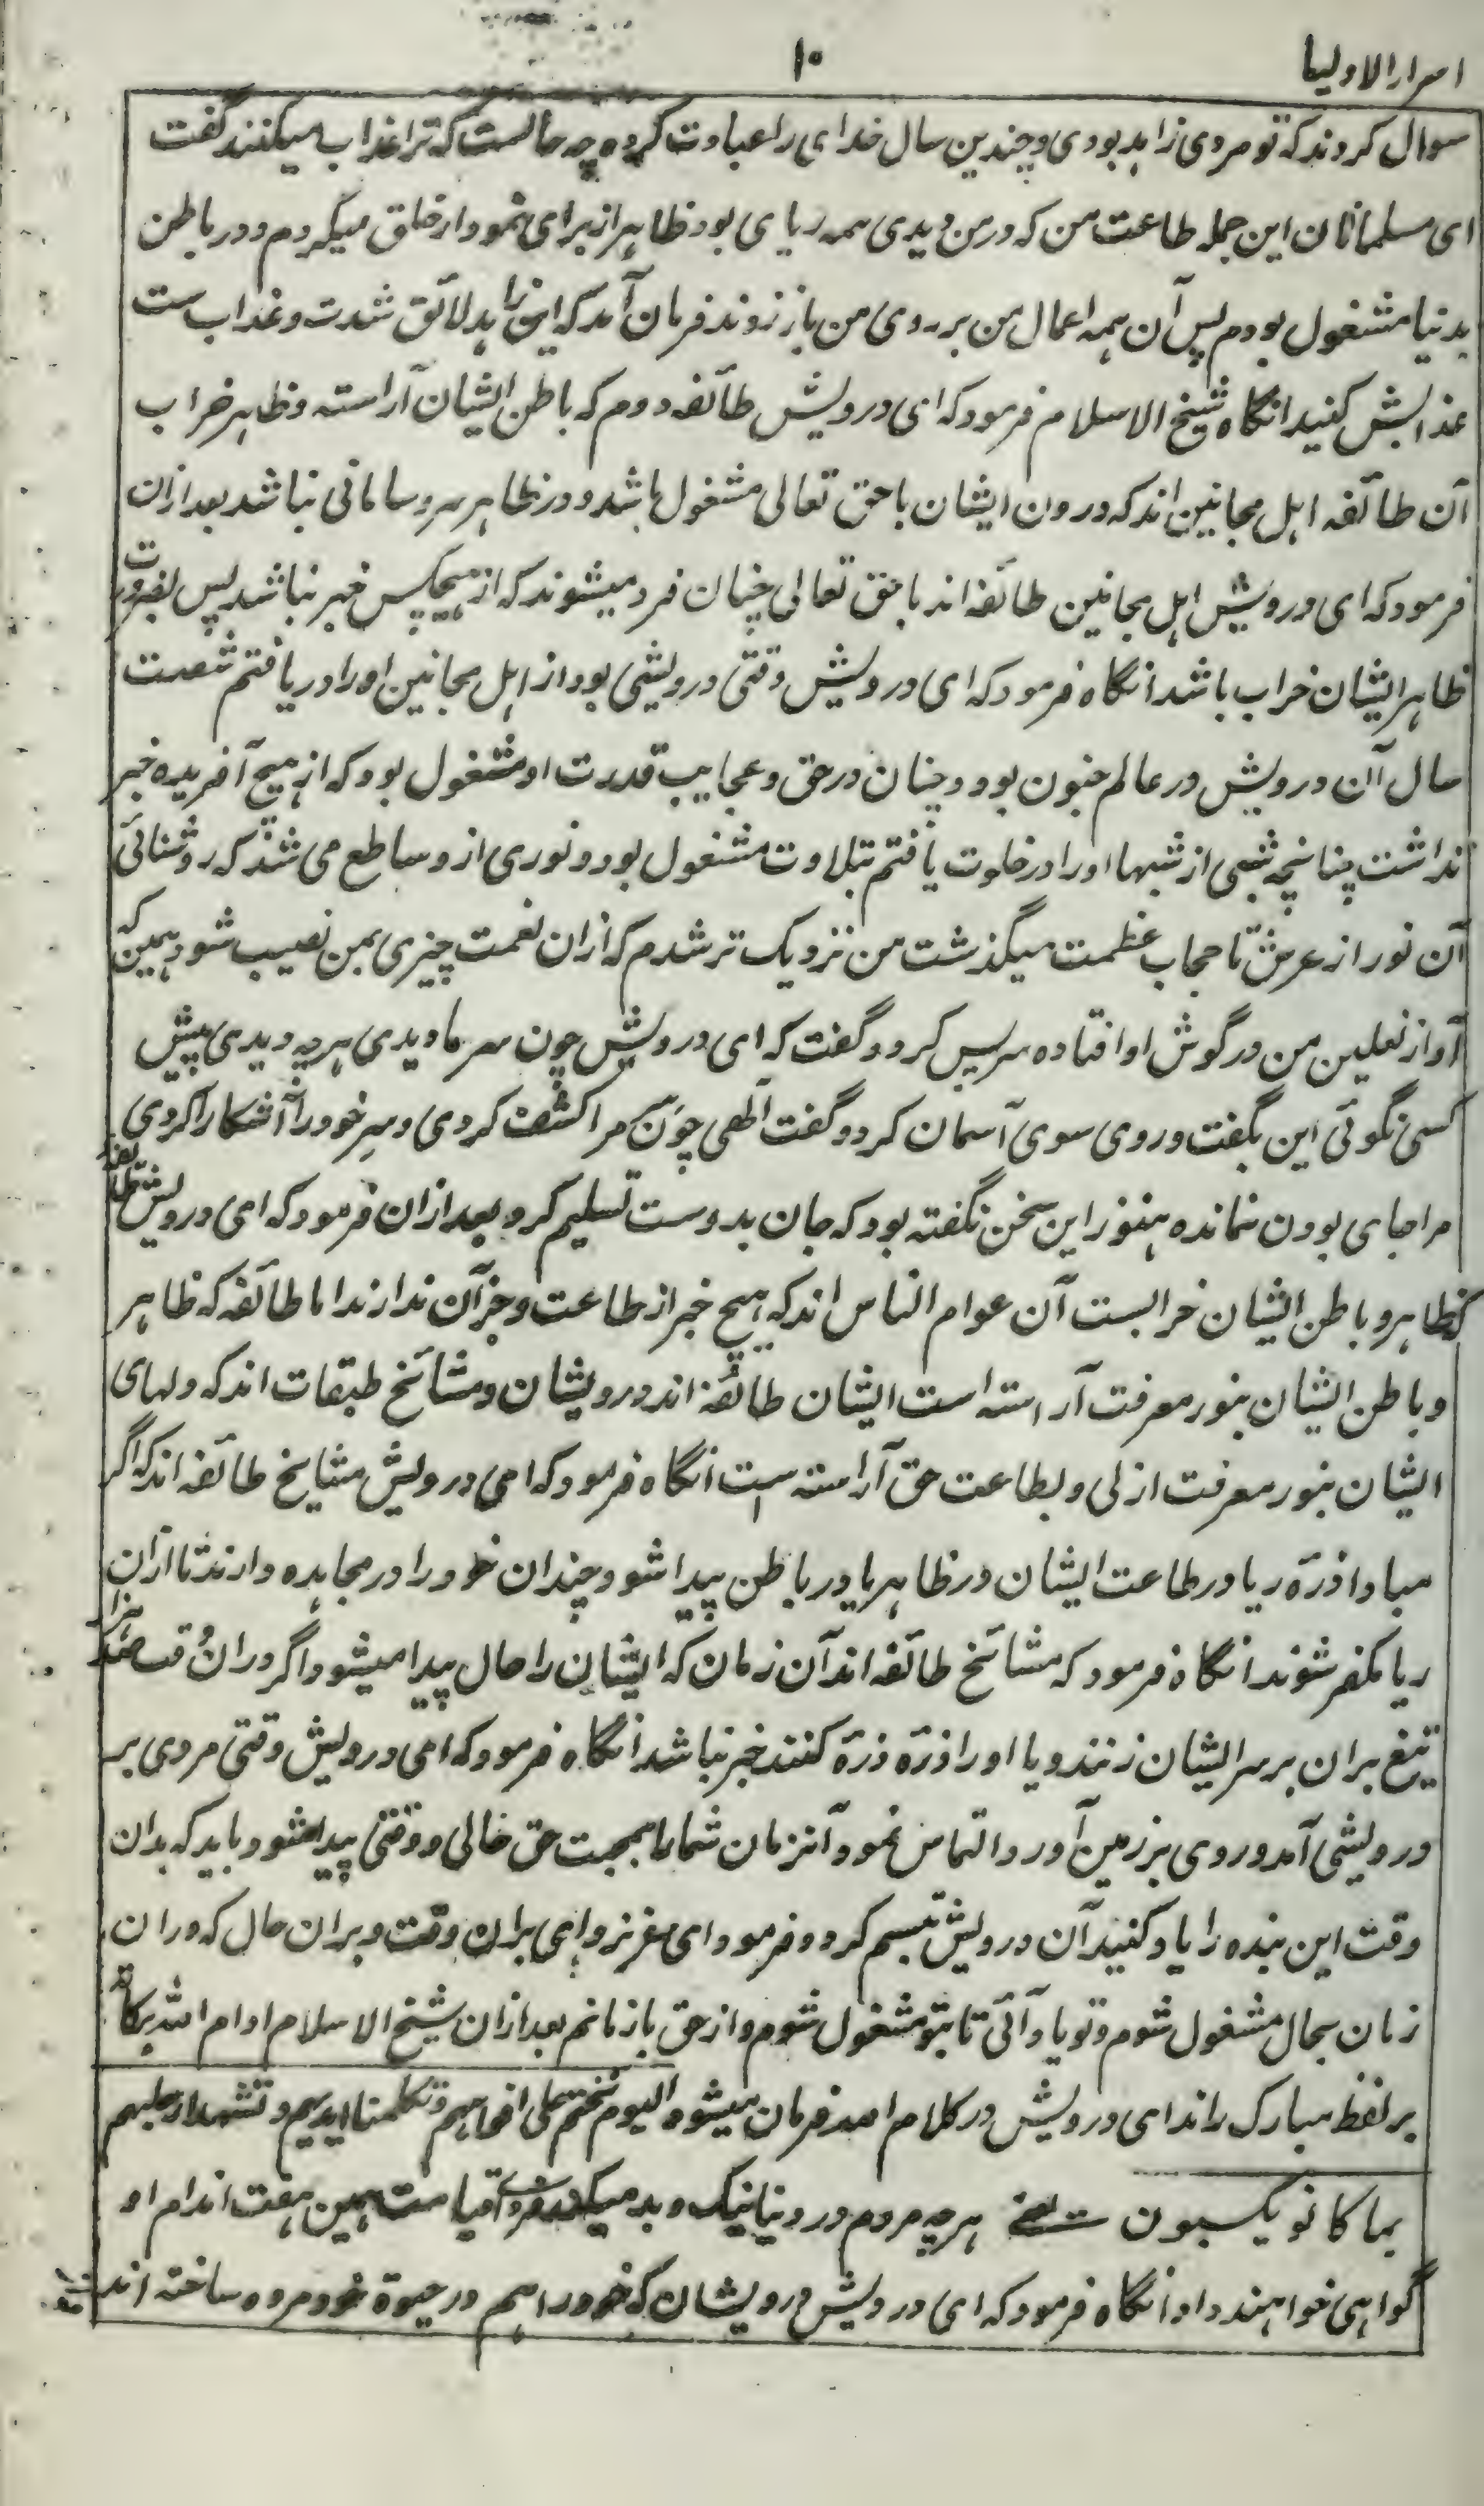 اسرار الاولیا
۱۰
سوال کردند که تو مردی زاهد بودی و چندین سال خدای را عبادت کرده چه حالست که ترا عذاب میکنند گفت
ای مسلمانان این جمله طاعت من که در من دیدی همه ریای بود ظاهر از برای نمودار خلق میکردم و در باطن
بدنیا مشغول بودم پس آن همه اعمال من بر روی من باز زدند فرمان آمد که این زاهد لائق شدت و عذاب ست
عذابش کنید انگاه شیخ الاسلام فرمود که ای درویش طائفه دوم که باطن ایشان آراسته و ظاهر خراب
آن طائفه اهل مجانین اند که درون ایشان با حق تعالی مشغول باشد و در ظاهر سر و سامانی نباشد بعد ازان
فرمود که ای درویش اهل مجانین طائفه اند با حق تعالی چنان فرد میشوند که از هیچکس خبر نباشد پس بضرورت
ظاهر ایشان خراب باشد انگاه فرمود که ای درویش وقتی درویشی بود از اهل مجانین او را دریافتم شصت
سال آن درویش در عالم جنون بود و چنان در حق و عجایب قدرت او مشغول بود که از هیچ آفریده خبر
نداشت چنانچه شبی از شبها او را در خلوت یافتم بتلاوت مشغول بود و نوری از و ساطع می شد که روشنائی
آن نور از عرش تا حجاب عظمت میگذشت من نزدیک تر شدم که ازان نعمت چیزی بمن نصیب شود همین که
آواز نعلین من در گوش او افتاده سر پس کرد و گفت که ای درویش چون سر ما دیدی هرچه دیدی پیش
کسی نگوئی این بگفت و روی سوی آسمان کرد و گفت الهی چون سر مرا کشف کردی و سر خود را آشکارا کردی
مرا جای بودن نمانده هنوز این سخن نگفته بود که جان بدوست تسلیم کرد بعد ازان فرمود که ای درویش طائفه
که ظاهر و باطن ایشان خرابست آن عوام الناس اند که هیچ خبر از طاعت و جز آن ندارند اما طائفه که ظاهر
و باطن ایشان بنور معرفت آراسته است ایشان طائفه اند درویشان و مشائخ طبقات اند که دلهای
ایشان بنور معرفت ازلی و بطاعت حق آراسته است انگاه فرمود که ای درویش مشایخ طائفه اند که اگر
مبادا ذرّه ریا در طاعت ایشان در ظاهر یا در باطن پیدا شود چندان خود را در مجاهده دارند تا ازان
ریا مکفر شوند انگاه فرمود که مشائخ طائفه اند آن زمان که ایشان را حال پیدا میشود اگر دران وقت صد هزار
تیغ بران بر سر ایشان زنند و یا او را ذرّه ذرّه کنند خبر نباشد انگاه فرمود که ای درویش وقتی مردی بر
درویشی آمد و روی بر زمین آورد و التماس نمود آنزمان شما را بمحبت حق حالی و وقتی پیدا شود باید که بدان
وقت این بنده را یاد کنید آن درویش تبسم کرد و فرمود ای عزیز وای بران وقت و بران حال که دران
زمان بحال مشغول شوم و تو یاد آئی تا بتو مشغول شوم و از حق باز مانم بعد ازان شیخ الاسلام ادام الله برکاته
بر لفظ مبارک راند ای درویش در کلام الله فرمان میشود الیوم نختم علی افواههم و تکلمنا ایدیهم و تشهد ارجلهم
بما کانو یکسبون یعنی هرچه مردم در دنیا نیک و بد میکند فردای قیامت همین هفت اندام او
گواهی خواهند داد انگاه فرمود که ای درویش درویشان که خود را هم در حیوة خود مرده ساخته اند